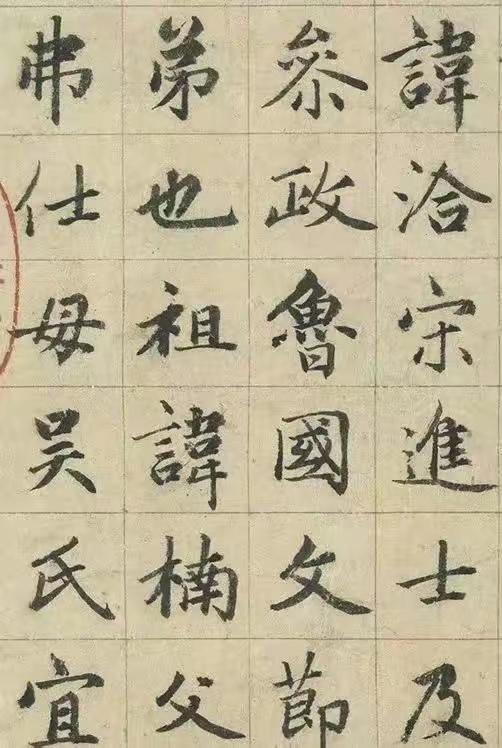 諱洽宋進士及
叅政魯國文節
弟也祖諱楠父
弗仕母吳氏宜